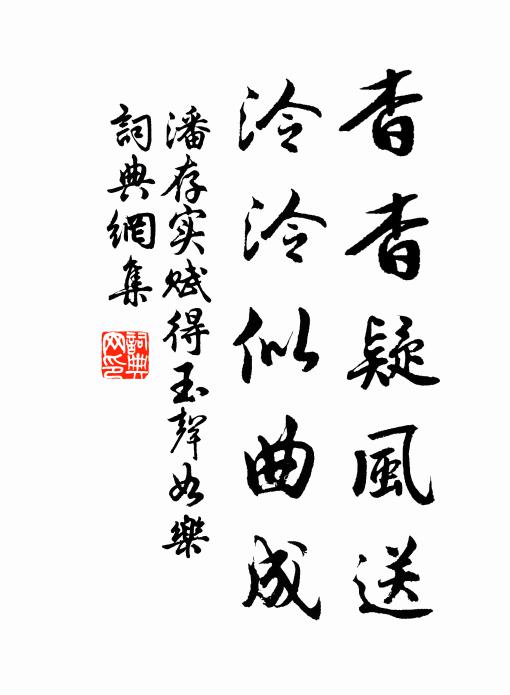 杳杳疑風送
泠泠似曲成
潘存实賦得玉聲如樂
詞典網集
詞典
网印